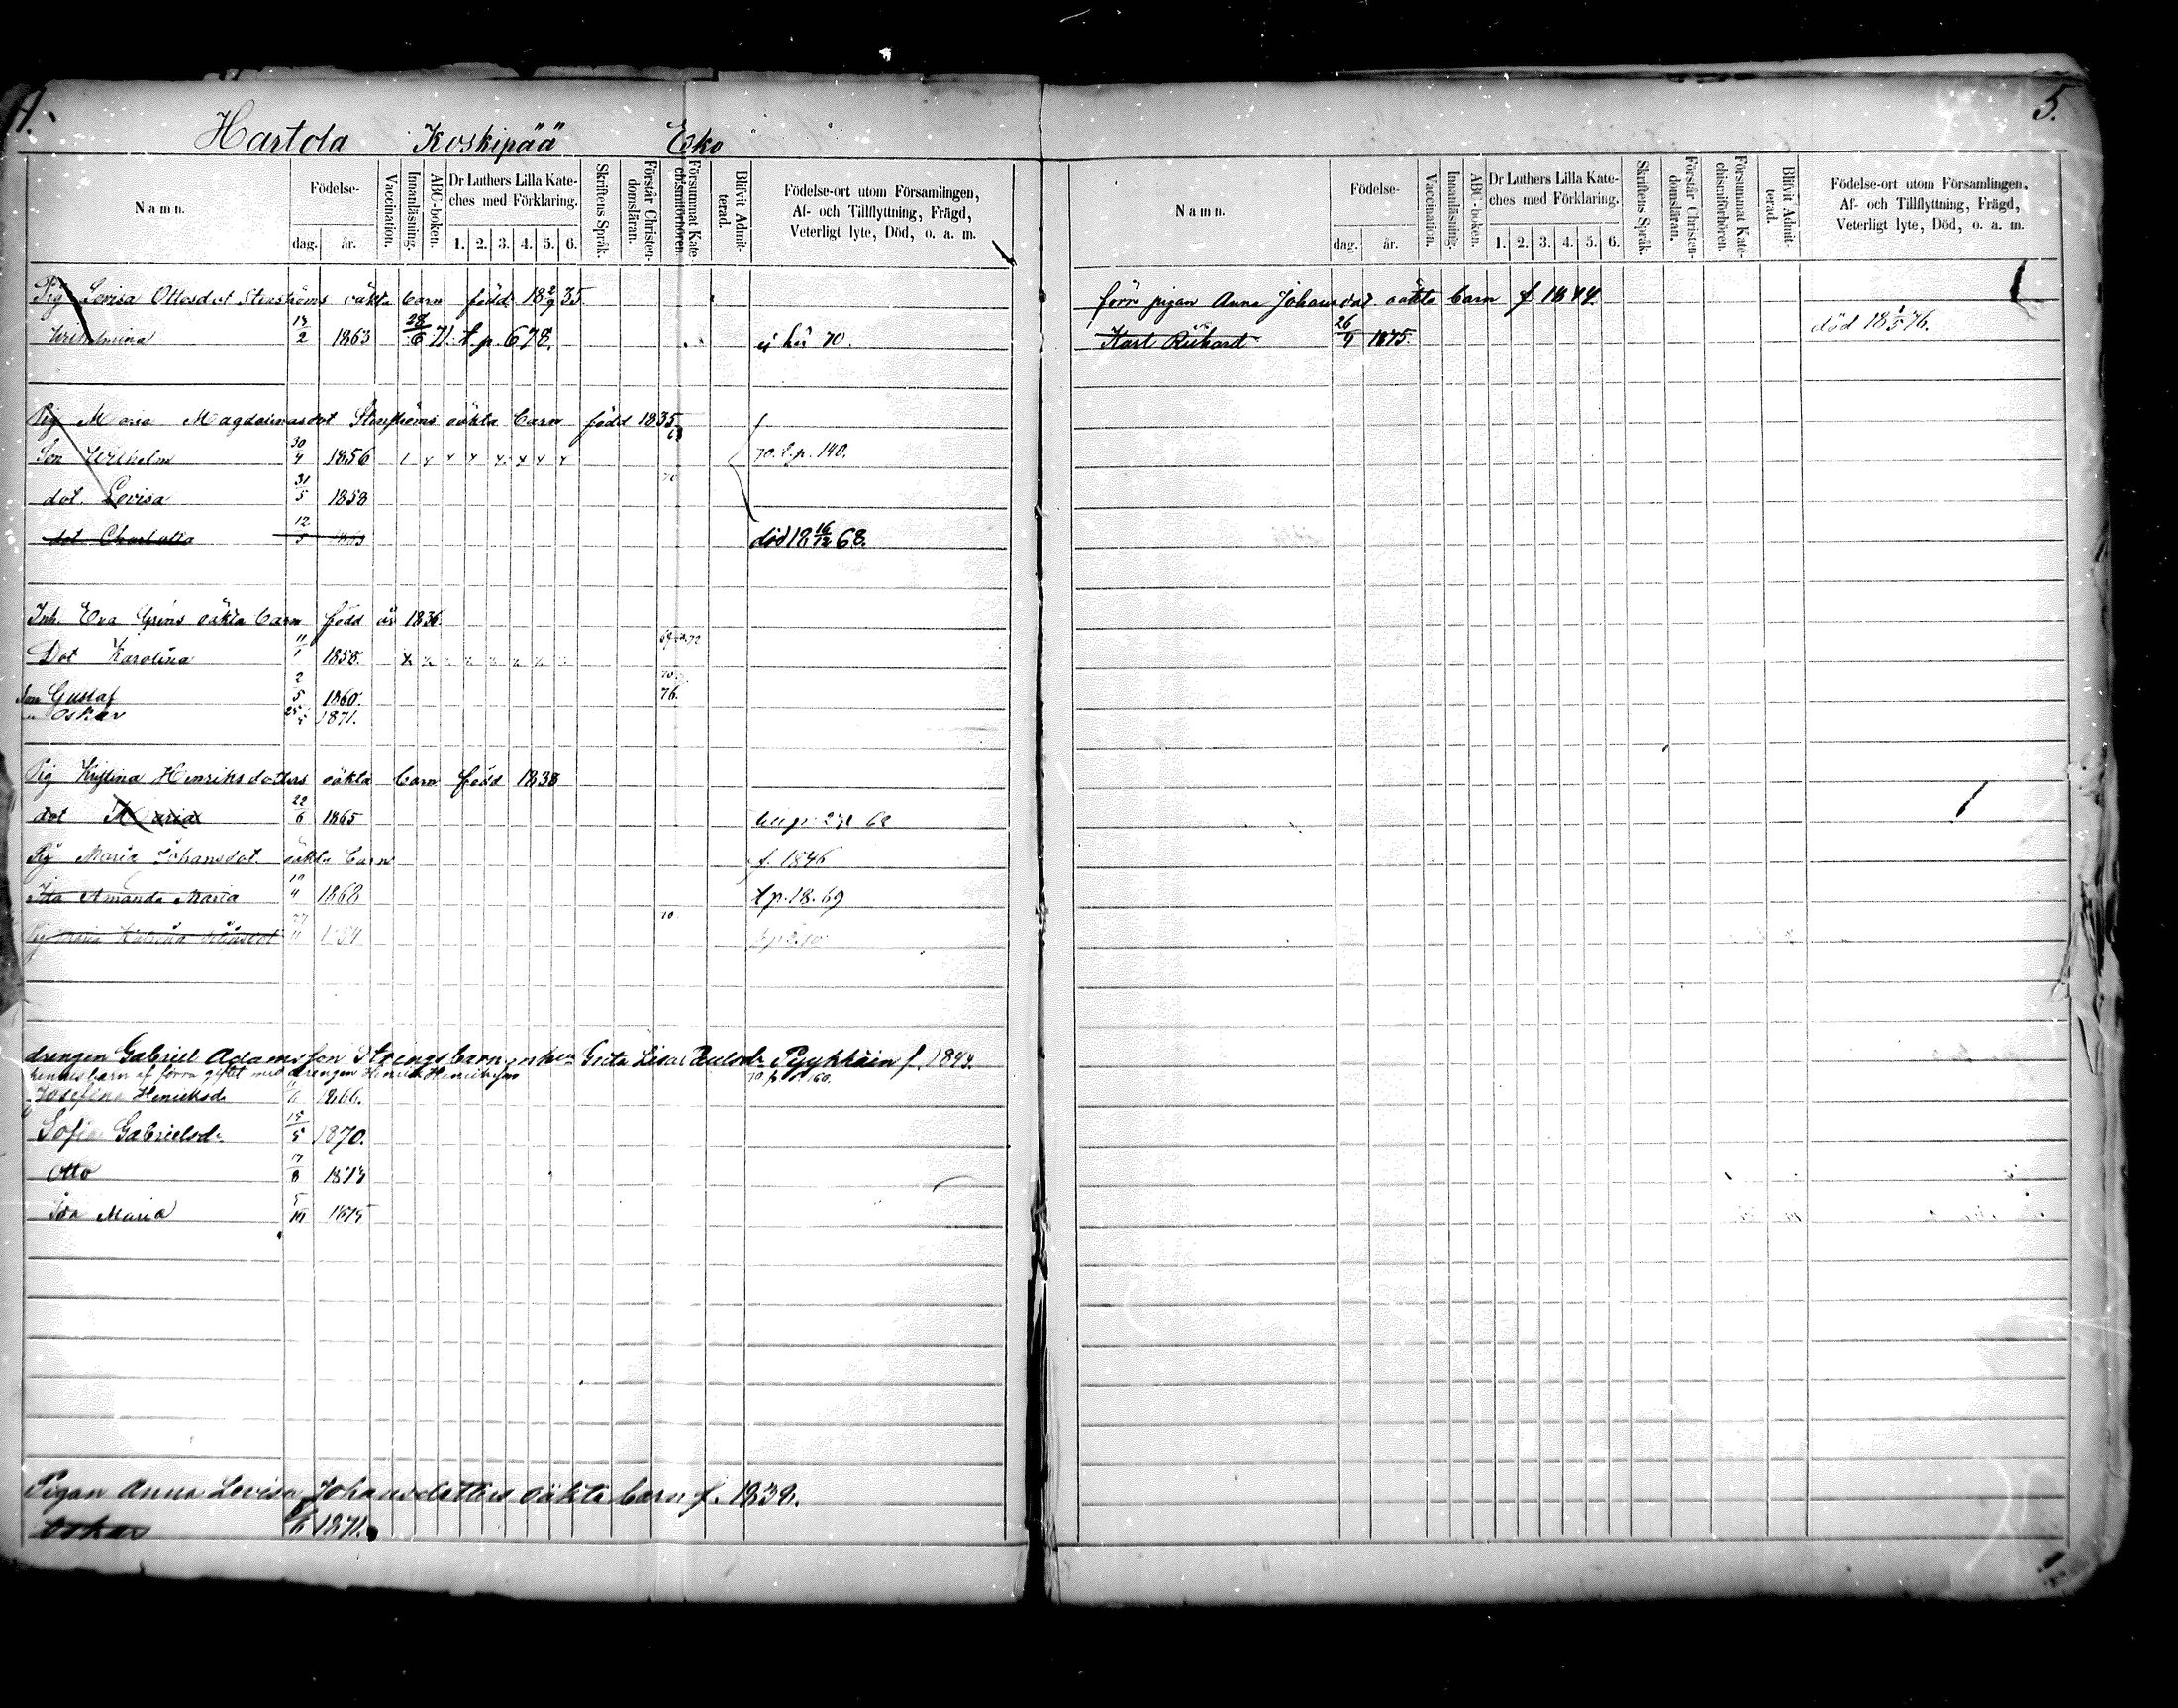 5.
Hartola Koskipää Esko
Namn.
Födelse-
dag. år.
Vaccination.
Innanläsning.
ABC-boken.
Dr Luthers Lilla Kate-
ches med Förklaring.
1. 2. 3. 4. 5. 6.
Skriftens Språk.
Förstår Christen-
domsläran.
Försummat Kate-
chismiförhören.
Blifvit Admit-
terad.
Födelse-ort utom Församlingen,
Af- och Tillflyttning, Frägd,
Veterligt lyte, Död, o. a. m.
Pig Lovisa Ottosdot Stenströms oäkta barn född 18 2/9 35
Wilhelmina 2 1863 28/6 71. t. p. 678. ej hä 70.
Pig Maria Magdalenasdot oäkta barn född 1835
Son Wilhelm 30/4 1856 70. t. p. 140.
dot. Lovisa 31/5 1858
dot. Charlotta 12/5 död 18 16/12 68.
Inh. Eva Gröns oäkta barn född år 1836
Dot Karolina 11/1 1858. 72
Son Gustaf 2/5 1860. 76.
Oskar 25/5 1871.
Pig Kristina Henriksdotters oäkta barn född 1838
dot Maria 22/6 1865
Pig Maria Johansdot. oäkta barn f. 1846
Ida Amanda Maria 1868 t p. 18. 69
Pig Maria Katrina 70.
drengen Gabriel Adamsson Strengs barn, Greta Lisa Paulsdr Pyykkäin f. 1844.
hennes barn af förra giftet med drengen Henrik Henriksson
Josefina Henriksd. 1866.
Sofia Gabrielsd. 15/5 1870.
Otto 8 1873
Ida Maria 1875
Pigan Anna Lovisa Johansdotters oäkta barn f. 1838.
Oskar 1871.
Namn.
Födelse-
dag. år.
Vaccination.
Innanläsning.
ABC-boken.
Dr Luthers Lilla Kate-
ches med Förklaring.
1. 2. 3. 4. 5. 6.
Skriftens Språk.
Förstår Christen-
domsläran.
Försummat Kate-
chismiförhören.
Blifvit Admit-
terad.
Födelse-ort utom Församlingen,
Af- och Tillflyttning, Frägd,
Veterligt lyte, Död, o. a. m.
förre pigan Anna Johansdot. oäkta barn f. 1844.
Karl Rikhard 26/9 1875. död 18 1/5 76.